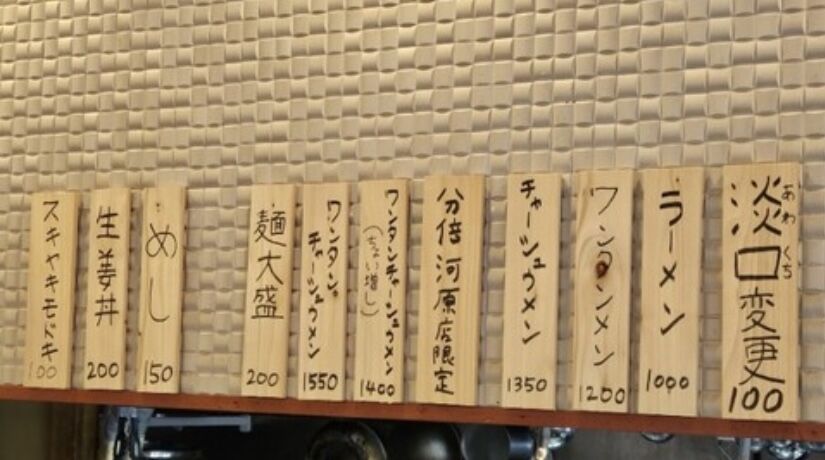 淡口変更
あわくち
100
ラーメン
1000
ワンタンメン
1200
チャーシュウメン
1350
分倍河原店限定
ワンタンチャーシュウメン
(ちょい増し)
1400
ワンタン。
チャーシュウメン
1550
麺大盛
200
めし
150
生姜丼
200
スキヤキモドキ
100